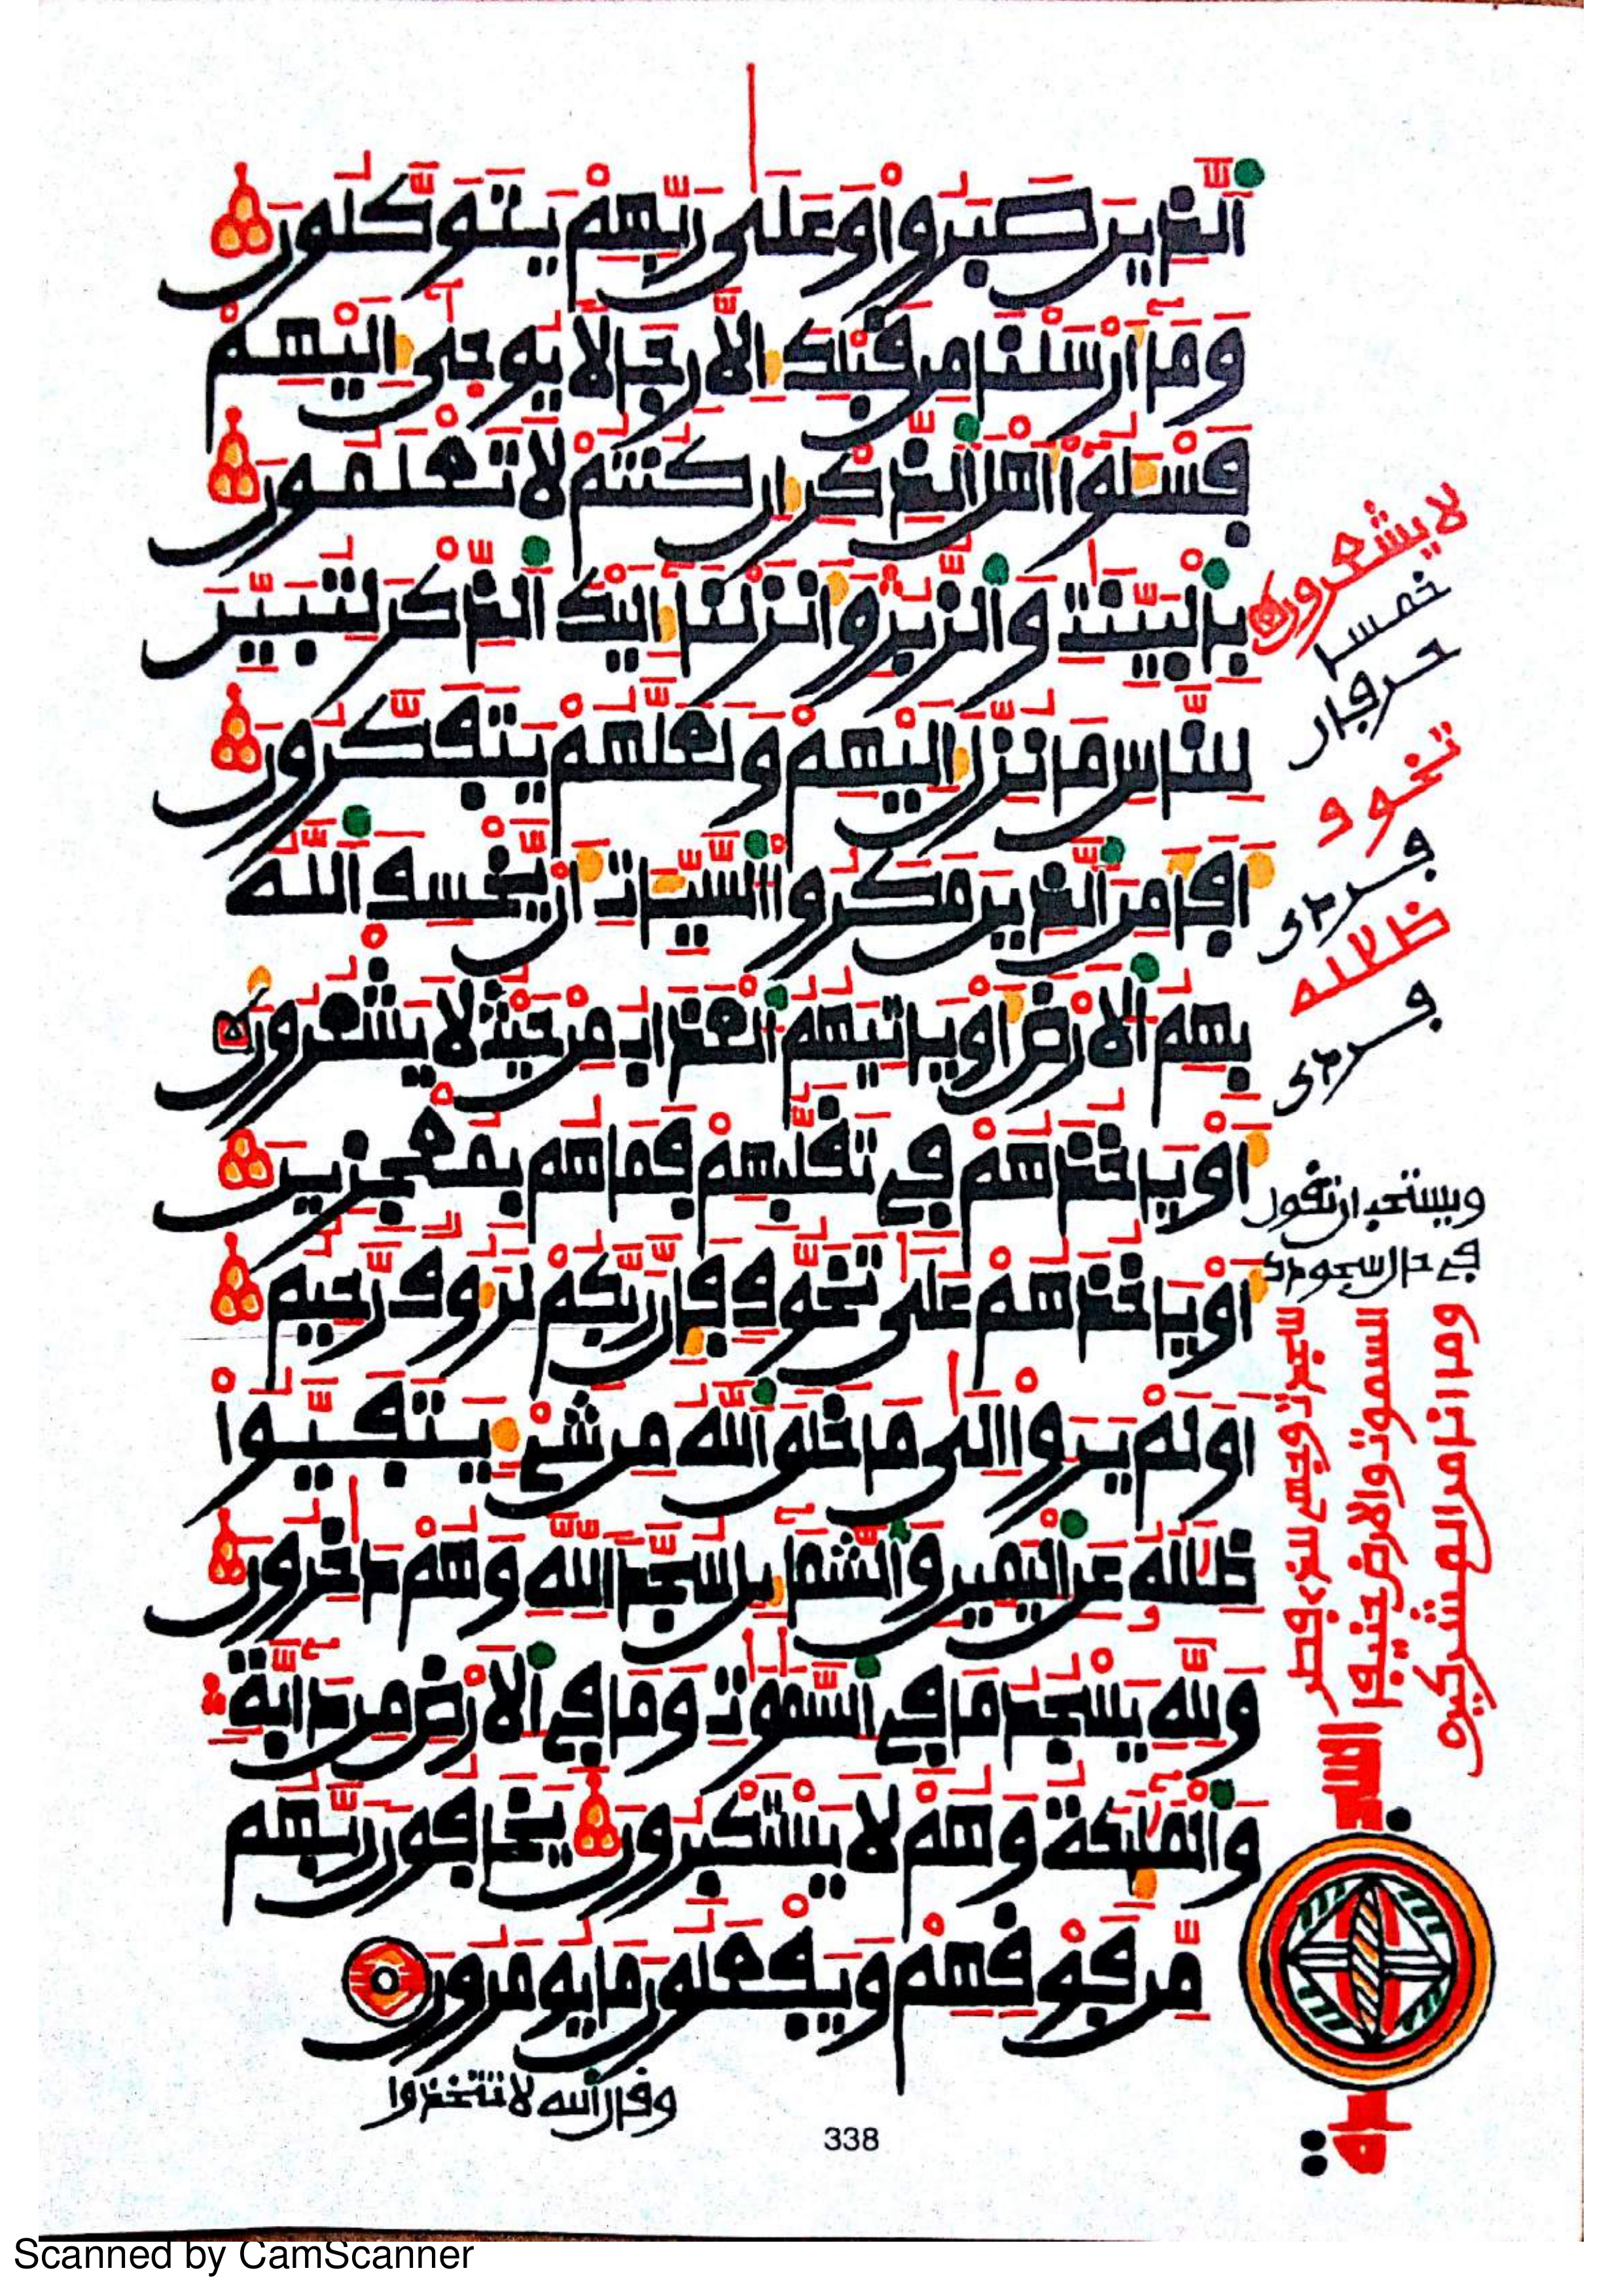 ٱلذِينَ صَبَرُواْ وَعَلَىٰ رَبِّهِمْ يَتَوَكَّلُونَ
وَمَآ أَرْسَلْنَا مِن قَبْلِكَ إِلَّا رِجَالًا يُوحَىٰٓ إِلَيْهِمْ
فَسْـَٔلُوٓاْ أَهْلَ ٱلذِّكْرِ إِن كُنتُمْ لَا تَعْلَمُونَ
بِالْبَيِّنَٰتِ وَٱلزُّبُرِ وَأَنزَلْنَآ إِلَيْكَ ٱلذِّكْرَ لِتُبَيِّنَ
لِلنَّاسِ مَا نُزِّلَ إِلَيْهِمْ وَلَعَلَّهُمْ يَتَفَكَّرُونَ
أَفَأَمِنَ ٱلذِينَ مَكَرُواْ ٱلسَّيِّـَٔاتِ أَنْ يَّخْسِفَ ٱللَّهُ
بِهِمُ ٱلْأَرْضَ أَوْ يَاتِيَهُمُ ٱلْعَذَابُ مِنْ حَيْثُ لَا يَشْعُرُونَ
أَوْ يَاخُذَهُمْ فِي تَقَلُّبِهِمْ فَمَا هُم بِمُعْجِزِينَ
أَوْ يَاخُذَهُمْ عَلَىٰ تَخَوُّفٍ فَإِنَّ رَبَّكُمْ لَرَءُوفٌ رَّحِيمٌ
أَوَلَمْ يَرَوْاْ إِلَىٰ مَا خَلَقَ ٱللَّهُ مِن شَيْءٍ يَتَفَيَّؤُاْ
ظِلَٰلُهُ عَنِ ٱلْيَمِينِ وَٱلشَّمَآئِلِ سُجَّدًا لِّلَّهِ وَهُمْ دَٰخِرُونَ
وَلِلَّهِ يَسْجُدُ مَا فِي ٱلسَّمَٰوَٰتِ وَمَا فِي ٱلْأَرْضِ مِن دَآبَّةٍ
وَٱلْمَلَٰٓئِكَةُ وَهُمْ لَا يَسْتَكْبِرُونَ يَخَافُونَ رَبَّهُم
مِّن فَوْقِهِمْ وَيَفْعَلُونَ مَا يُومَرُونَ
وقال ٱلله لا تتخذوا
338
لا يشعرون
خمس
حرفان
تخوف
ظلله
ويستحب ان تقول
في حال سجودك
وما انا من المشركين
السموت والارض حنيفا
وجهي للذي فطر
Scanned by CamScanner